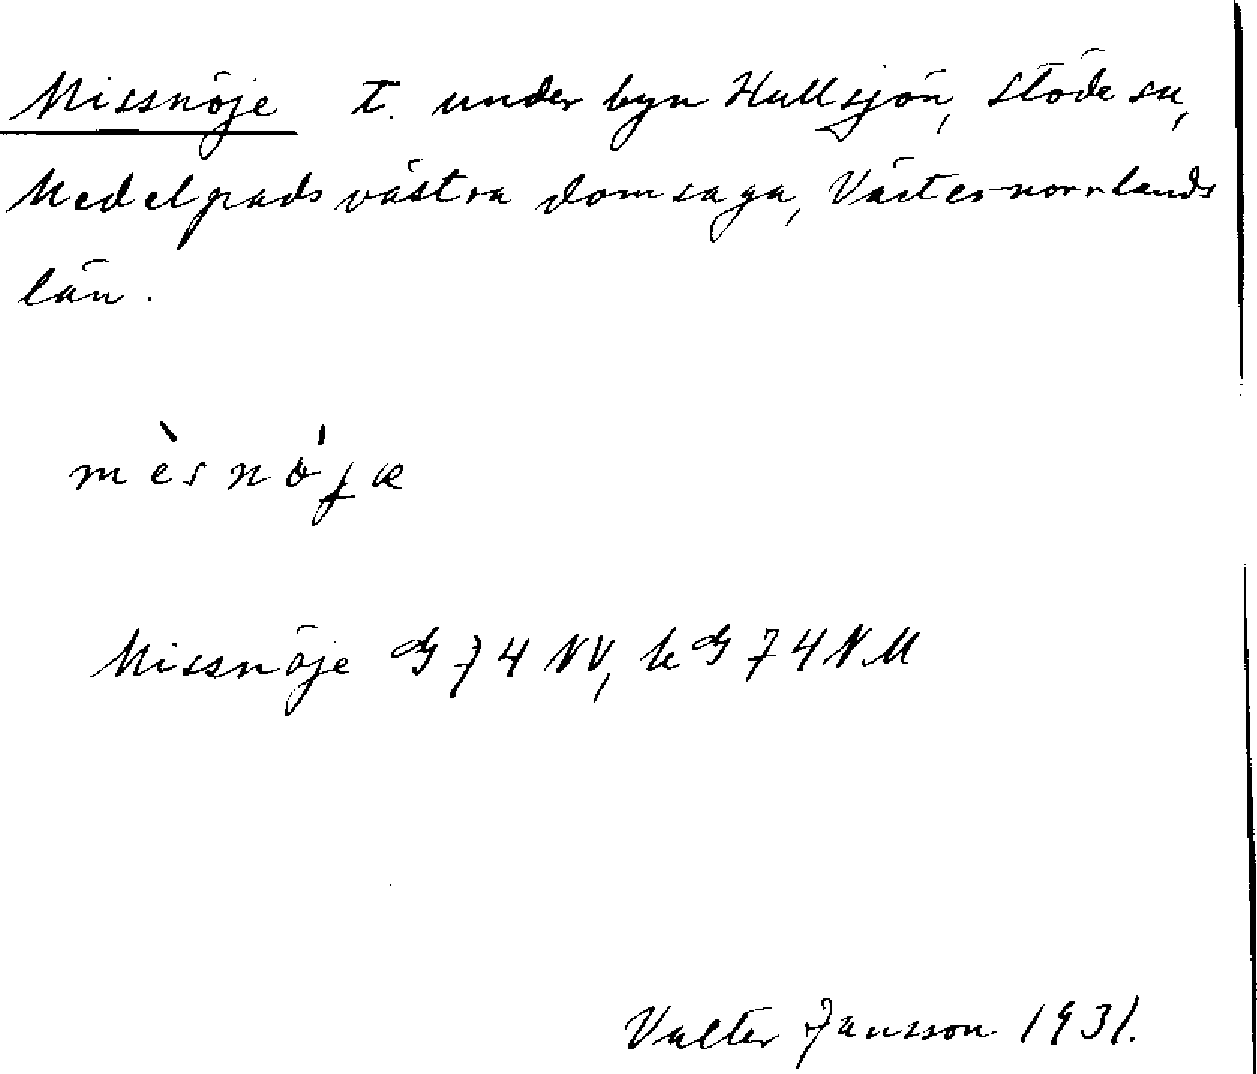 Missnöje t. under byn Hullsjön, Stöde sn,
Medelpads västra domsaga, Västernorrlands
län.
mèsnö́jæ
Missnöje G 74 NV, k G 74 NM
Valter Jansson 1931.